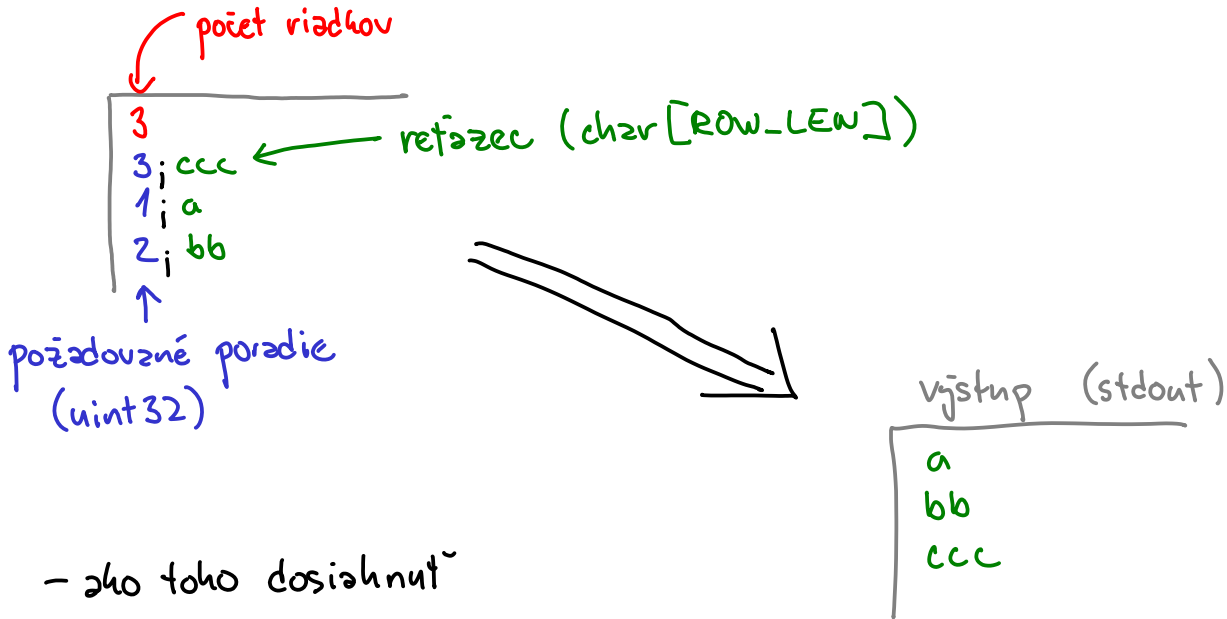 počet riadkov
3
3; ccc
reťazec (char[ROW_LEN])
1; a
2; bb
požadované poradie
(uint32)
výstup (stdout)
a
bb
ccc
- ako toho dosiahnuť